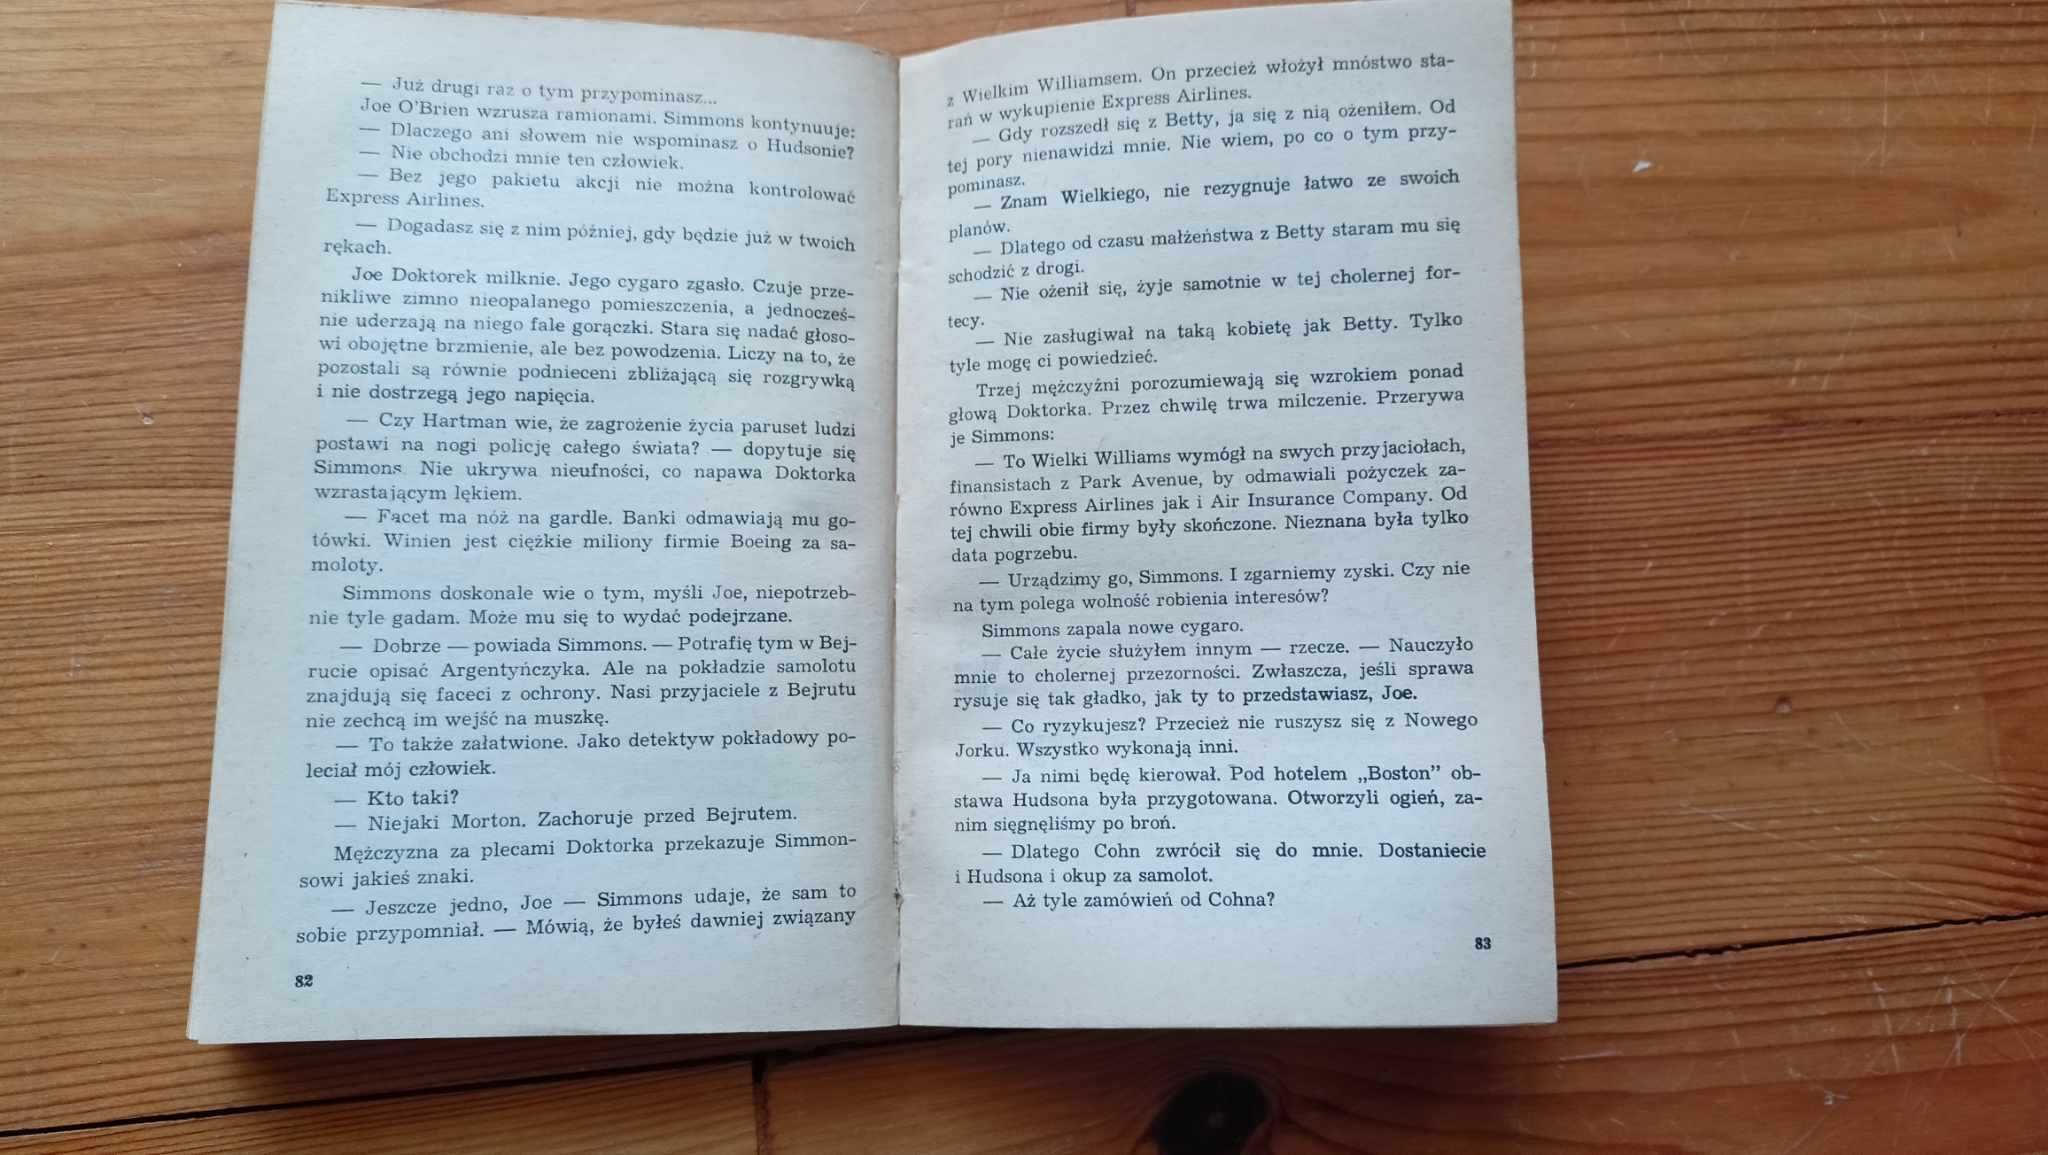 — Już drugi raz o tym przypominasz...
Joe O'Brien wzrusza ramionami. Simmons kontynuuje:
— Dlaczego ani słowem nie wspominasz o Hudsonie?
— Nie obchodzi mnie ten człowiek.
— Bez jego pakietu akcji nie można kontrolować
Express Airlines.
— Dogadasz się z nim później, gdy będzie już w twoich
rękach.
Joe Doktorek milknie. Jego cygaro zgasło. Czuje prze-
nikliwe zimno nieopalanego pomieszczenia, a jednocześ-
nie uderzają na niego fale gorączki. Stara się nadać głoso-
wi obojętne brzmienie, ale bez powodzenia. Liczy na to, że
pozostali są równie podnieceni zbliżającą się rozgrywką
i nie dostrzegą jego napięcia.
— Czy Hartman wie, że zagrożenie życia paruset ludzi
postawi na nogi policję całego świata? — dopytuje się
Simmons. Nie ukrywa nieufności, co napawa Doktorka
wzrastającym lękiem.
— Facet ma nóż na gardle. Banki odmawiają mu go-
tówki. Winien jest ciężkie miliony firmie Boeing za sa-
moloty.
Simmons doskonale wie o tym, myśli Joe, niepotrzeb-
nie tyle gadam. Może mu się to wydać podejrzane.
— Dobrze — powiada Simmons. — Potrafię tym w Bej-
rucie opisać Argentyńczyka. Ale na pokładzie samolotu
znajdują się faceci z ochrony. Nasi przyjaciele z Bejrutu
nie zechcą im wejść na muszkę.
— To także załatwione. Jako detektyw pokładowy po-
leciał mój człowiek.
— Kto taki?
— Niejaki Morton. Zachoruje przed Bejrutem.
Mężczyzna za plecami Doktorka przekazuje Simmon-
sowi jakieś znaki.
— Jeszcze jedno, Joe — Simmons udaje, że sam to
sobie przypomniał. — Mówią, że byłeś dawniej związany
82
z Wielkim Williamsem. On przecież włożył mnóstwo sta-
rań w wykupienie Express Airlines.
— Gdy rozszedł się z Betty, ja się z nią ożeniłem. Od
tej pory nienawidzi mnie. Nie wiem, po co o tym przy-
pominasz.
— Znam Wielkiego, nie rezygnuje łatwo ze swoich
planów.
— Dlatego od czasu małżeństwa z Betty staram mu się
schodzić z drogi.
— Nie ożenił się, żyje samotnie w tej cholernej for-
tecy.
— Nie zasługiwał na taką kobietę jak Betty. Tylko
tyle mogę ci powiedzieć.
Trzej mężczyźni porozumiewają się wzrokiem ponad
głową Doktorka. Przez chwilę trwa milczenie. Przerywa
je Simmons:
— To Wielki Williams wymógł na swych przyjaciołach,
finansistach z Park Avenue, by odmawiali pożyczek za-
równo Express Airlines jak i Air Insurance Company. Od
tej chwili obie firmy były skończone. Nieznana była tylko
data pogrzebu.
— Urządzimy go, Simmons. I zgarniemy zyski. Czy nie
na tym polega wolność robienia interesów?
Simmons zapala nowe cygaro.
— Całe życie służyłem innym — rzecze. — Nauczyło
mnie to cholernej przezorności. Zwłaszcza, jeśli sprawa
rysuje się tak gładko, jak ty to przedstawiasz, Joe.
— Co ryzykujesz? Przecież nie ruszysz się z Nowego
Jorku. Wszystko wykonają inni.
— Ja nimi będę kierował. Pod hotelem „Boston” ob-
stawa Hudsona była przygotowana. Otworzyli ogień, za-
nim sięgnęliśmy po broń.
— Dlatego Cohn zwrócił się do mnie. Dostaniecie
i Hudsona i okup za samolot.
— Aż tyle zamówień od Cohna?
83